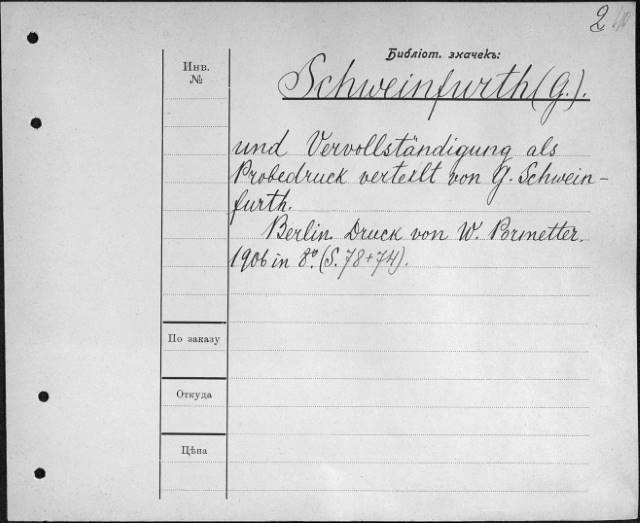 2
Библіот. значекъ:
Инв.
№
Schweinfurth (G.).
und Vervollständigung als
Probedruck verteilt von G. Schwein-
furth.
Berlin. Druck von W. Pormetter.
1906 in 8º. (S. 78+74).
По заказу
Откуда
Цѣна